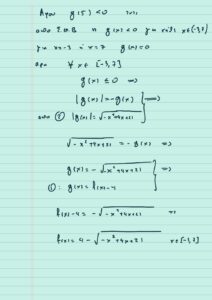 Αφου g(5) < 0 τοτε
απο Σ.Θ.Β η g(x) < 0 για καθε x∈(-3,7)
για x=-3 ή x=7 g(x)=0
αρα ∀ x ∈ [-3,7]
g(x) ≤ 0 ⇒
|g(x)| = -g(x) ⇒
απο |g(x)| = √-x²+4x+21
√-x²+4x+21 = -g(x) ⇒
g(x) = -√-x²+4x+21 ⇒
①: g(x) = f(x)-4
f(x)-4 = -√-x²+4x+21 ⇒
f(x) = 4-√-x²+4x+21 x∈[-3,7]